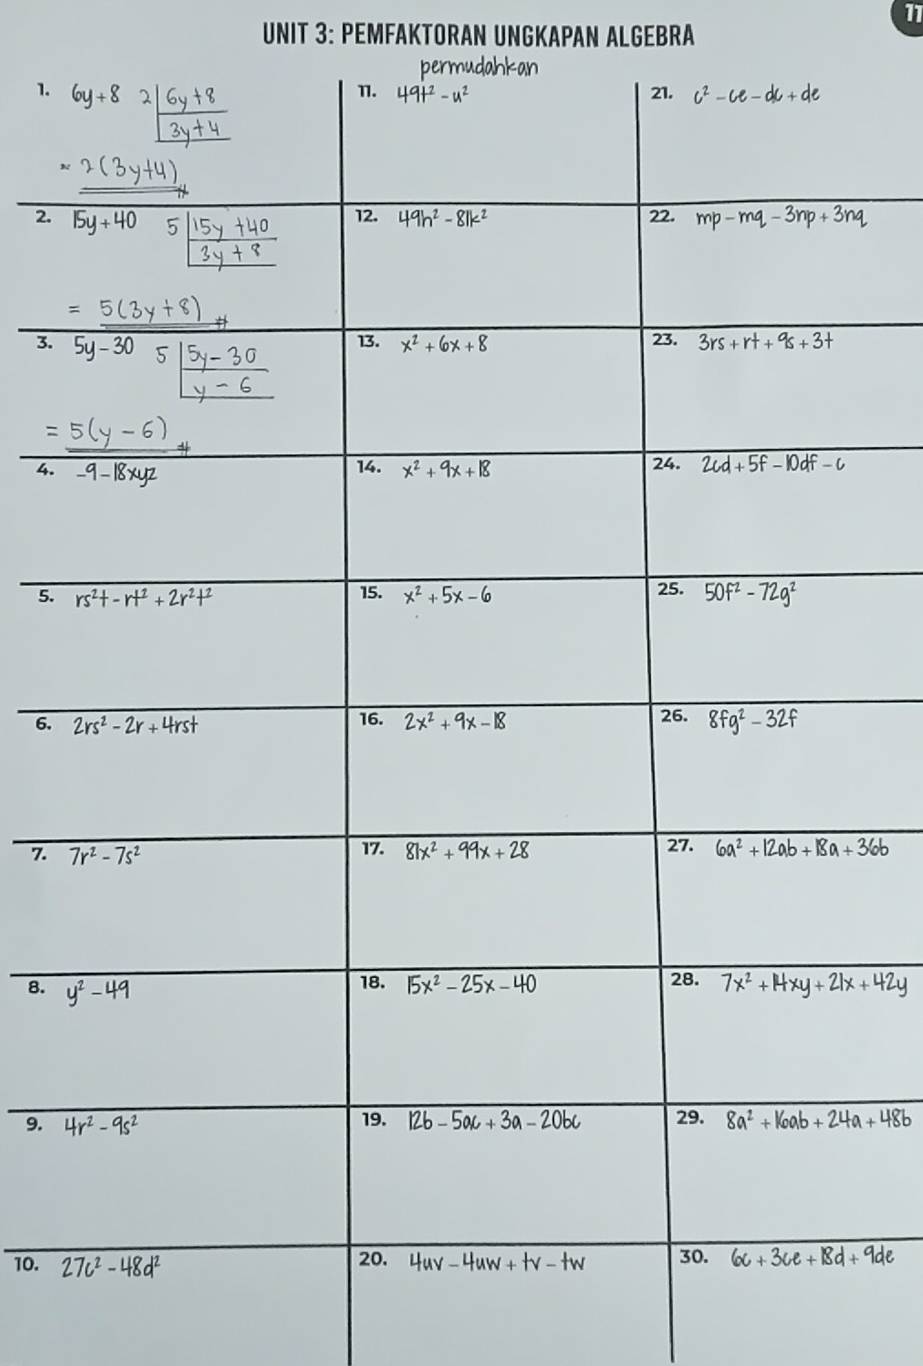 11
UNIT 3: PEMFAKTORAN UNGKAPAN ALGEBRA
permudahkan
1. 6y+8 2 6y+8
3y+4
= 2(3y+4)
2. 15y+40 5 15y+40
3y+8
= 5(3y+8)
3. 5y-30 5 5y-30
y-6
= 5(y-6)
4. -9-18xyz
5. rs²t-rt²+2r²t²
6. 2rs²-2r+4rst
7. 7r²-7s²
8. y²-49
9. 4r²-9s²
10. 27c²-48d²
11. 49t²-u²
12. 49h²-81k²
13. x²+6x+8
14. x²+9x+18
15. x²+5x-6
16. 2x²+9x-18
17. 81x²+99x+28
18. 15x²-25x-40
19. 12b-5ac+3a-20bc
20. 4uv-4uw+tv-tw
21. c²-ce-dc+de
22. mp-mq-3np+3nq
23. 3rs+rt+9s+3t
24. 2cd+5f-10df-c
25. 50f²-72g²
26. 8fg²-32f
27. 6a²+12ab+18a+36b
28. 7x²+14xy+21x+42y
29. 8a²+16ab+24a+48b
30. 6c+3ce+18d+9de